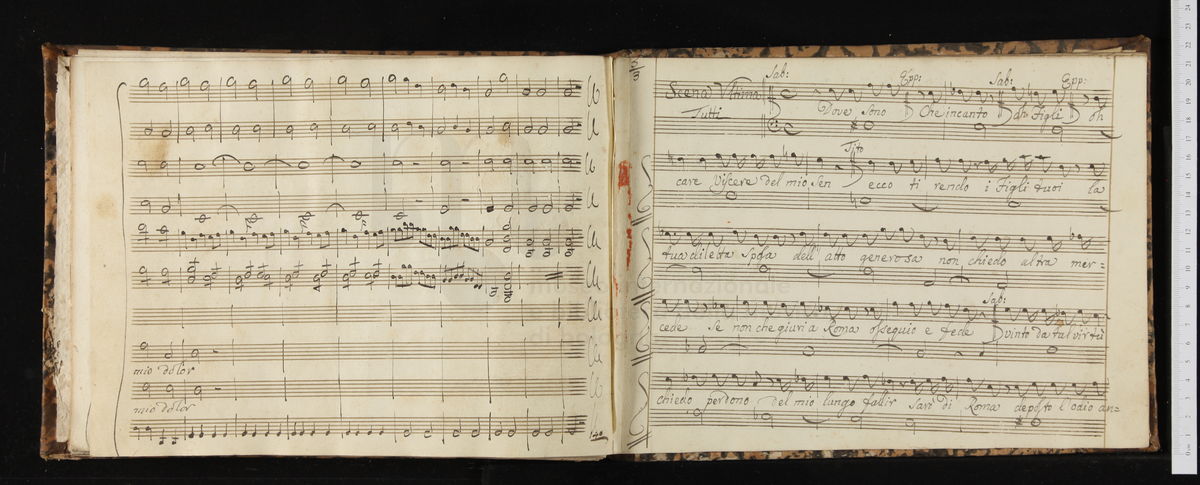 mio dolor
mio dolor
140
Sab: Epp: Sab: Epp:
Scena Ultima
Tutti
Dove sono Che incanto ah Figli oh
Tito
care Viscere del mio sen ecco ti rendo i Figli tuoi la
tua diletta Sposa dell' atto generosa non chiedo altra mer=
Sab:
cede se non che giuri a Roma osseguio e fede vinto da tal virtù
chiedo perdono del mio lungo fallir sarì di Roma deposto l'odio an=
museo internazionale